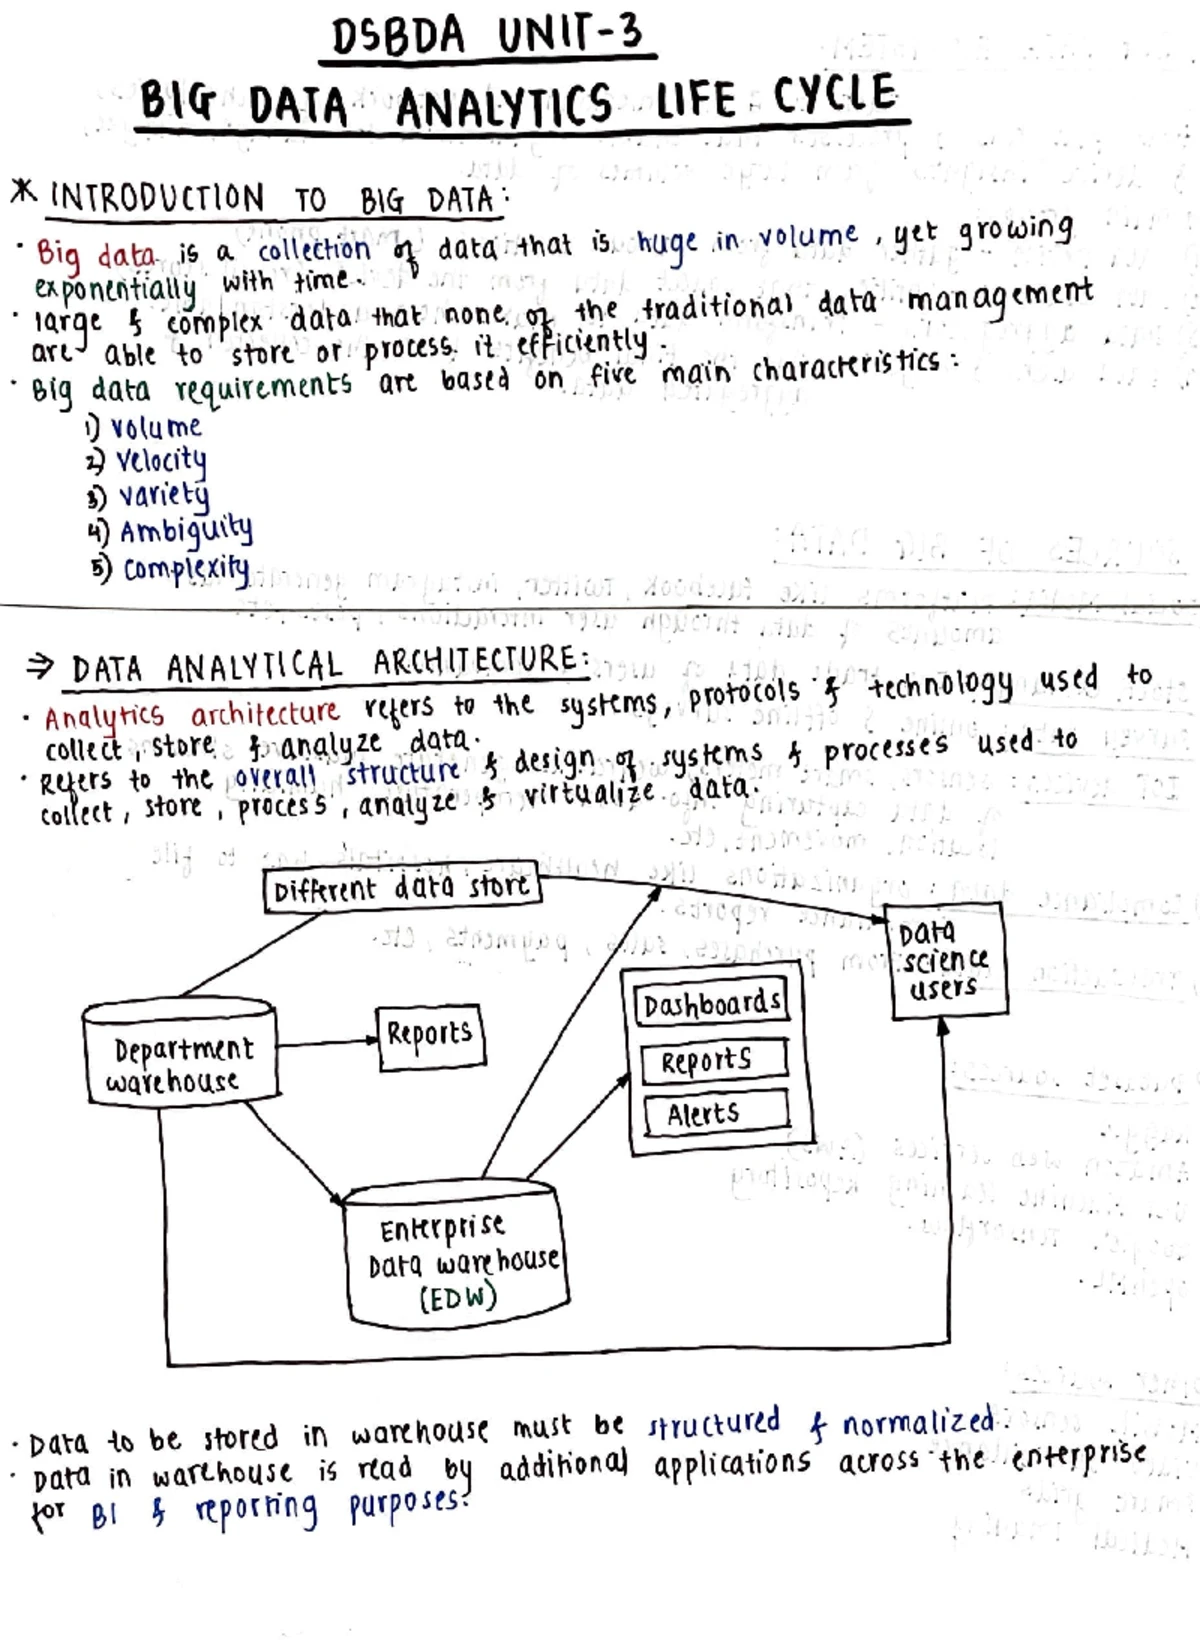 DSBDA UNIT-3
BIG DATA ANALYTICS LIFE CYCLE
* INTRODUCTION TO BIG DATA:
· Big data is a collection of data that is huge in volume, yet growing
exponentially with time.
· large & complex data that none of the traditional data management
are able to store or process it efficiently.
· Big data requirements are based on five main characteristics:
1) volume
2) velocity
3) variety
4) Ambiguity
5) complexity
⇒ DATA ANALYTICAL ARCHITECTURE:
· Analytics architecture refers to the systems, protocols & technology used to
collect, store & analyze data.
· Refers to the overall structure & design of systems & processes used to
collect, store, process, analyze & virtualize data.
Different data store
Data
science
users
Dashboards
Reports
Alerts
Reports
Department
warehouse
Enterprise
Data warehouse
(EDW)
· Data to be stored in warehouse must be structured & normalized.
· Data in warehouse is read by additional applications across the enterprise
for BI & reporting purposes.